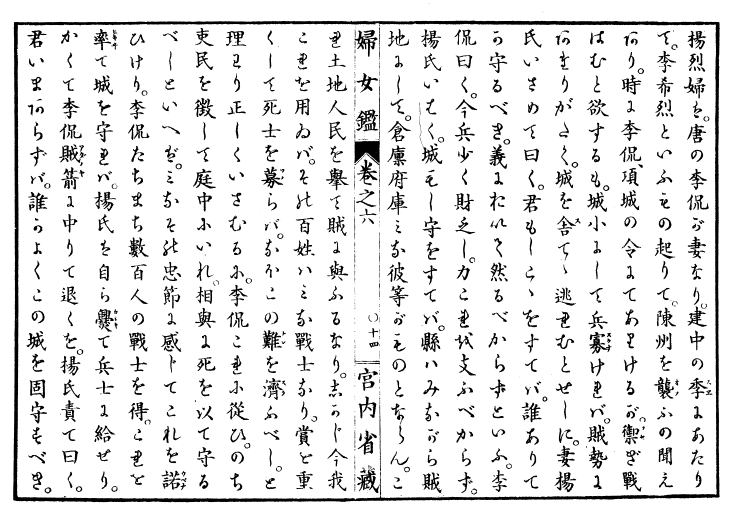 揚烈婦は。唐の李侃が妻なり。建中の季にあたり
て。李希烈といふもの起りて。陳州を襲ふの聞え
あり。時に李侃項城の令にてありけるが。禦ぎ戰
はむと欲するも。城小にして兵寡ければ。賊勢に
あたりがたく。城を舍てゝ逃れむとせしに。妻楊
氏いさめて曰く。君もしこゝをすてば。誰ありて
か守るべき。義において然るべからずといふ。李
侃曰く。今兵少く財乏し。力これを支ふべからず。
楊氏いはく。城もし守をすてば。縣はみながら賊
地にして。倉廩府庫みな彼等がものとならん。こ
婦女鑑 卷之六 ○十四 宮内省藏
れ土地人民を擧て賊に與ふるなり。志かじ今我
これを用ゐば。その百姓ハみな戰士なり。賞を重
くして死士を募らば。なほこの難を濟ふべし。と
理より正しくいさむるに。李侃これに從ひ。のち
吏民を徴して庭中にいれ。相與に死を以て守る
べしといへば。みなその忠節に感じてこれを諾
ひけり。李侃たちまち數百人の戰士を得。これを
率て城を守れば。楊氏を自ら爨て兵士に給せり。
かくて李侃賊箭に中りて退くを。楊氏責て曰く。
君いまあらずば。誰かよくこの城を固守すべき。